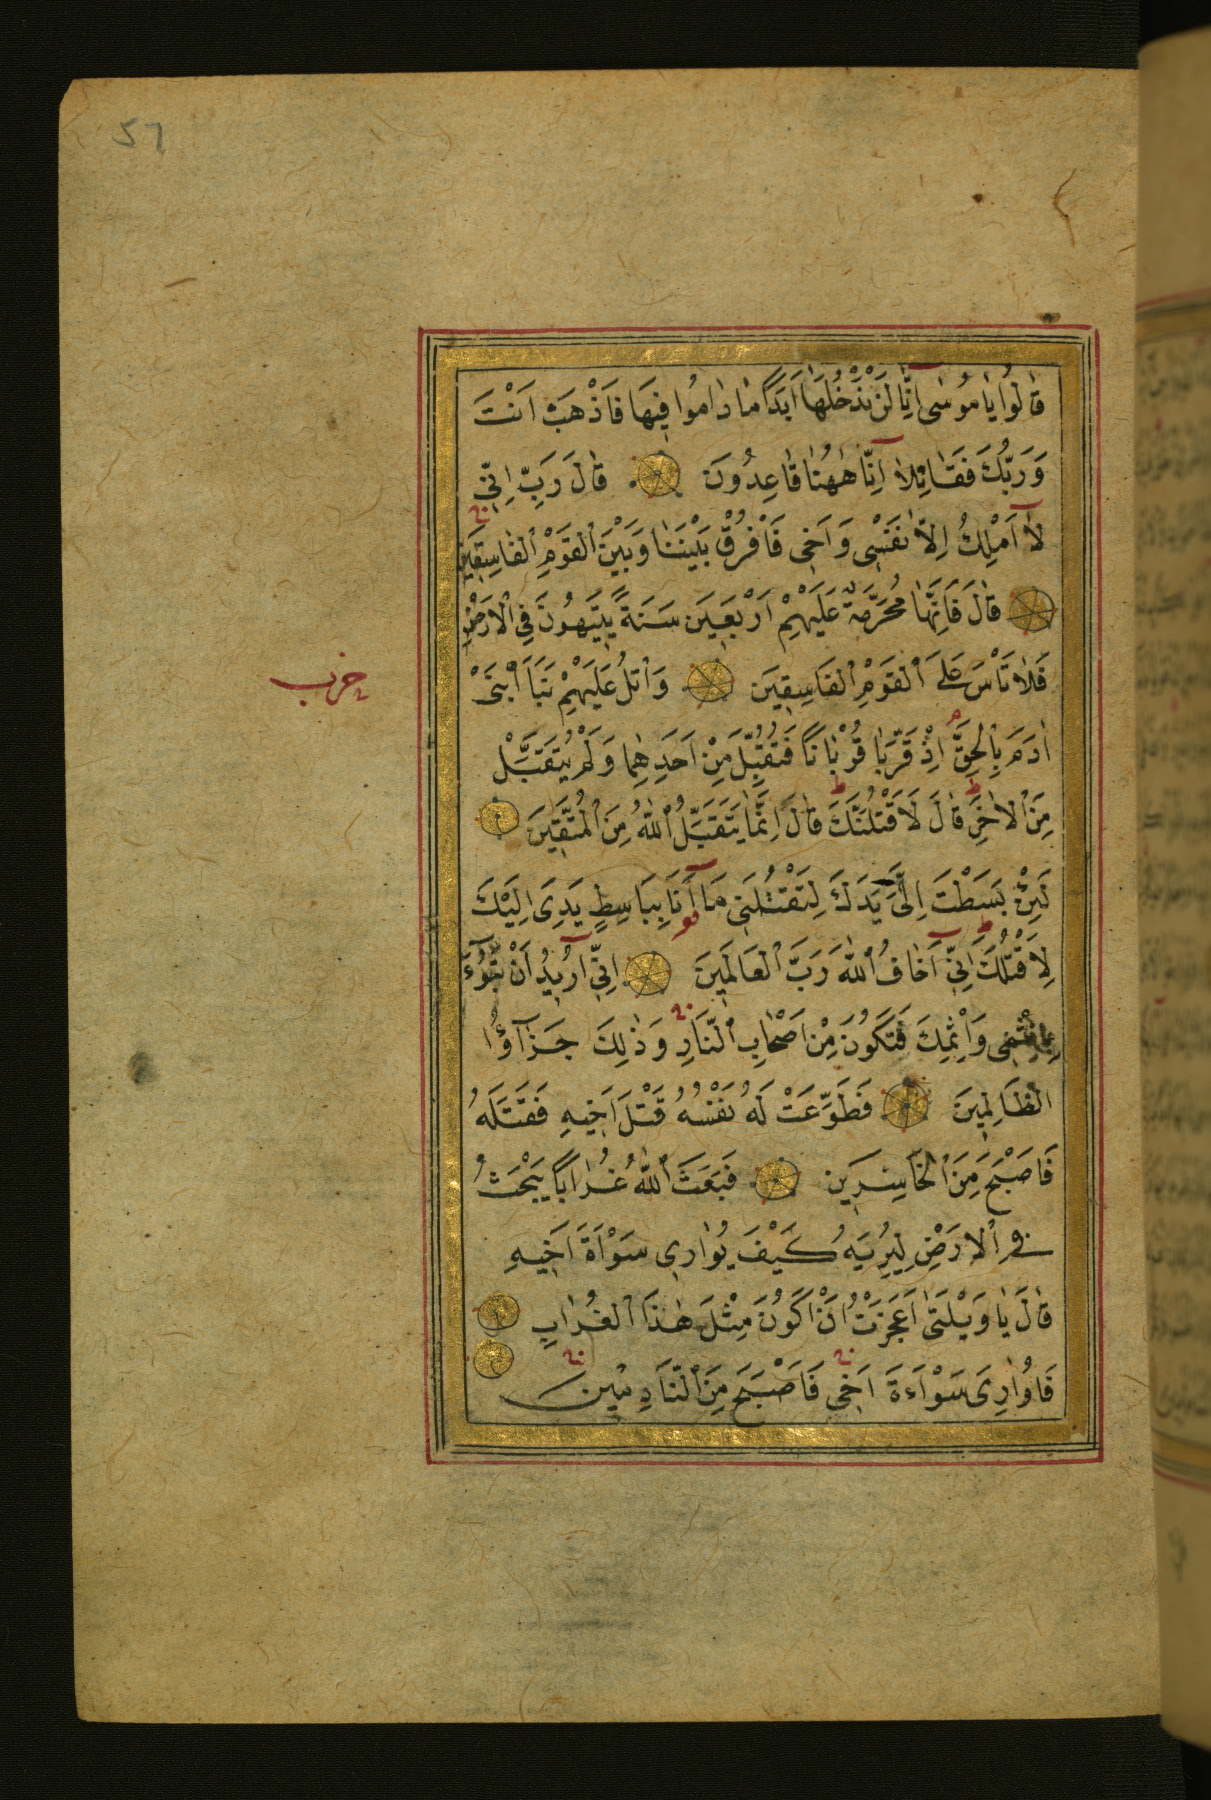 57
قَالُوا يَا مُوسٰى اِنَّا لَنْ نَدْخُلَهَا اَبَدًا مَا دَامُوا فِيهَا فَاذْهَبْ اَنْتَ
وَرَبُّكَ فَقَاتِلَا اِنَّا هٰهُنَا قَاعِدُونَ قَالَ رَبِّ اِنِّي
لَا اَمْلِكُ اِلَّا نَفْسِي وَاَخِي فَافْرُقْ بَيْنَنَا وَبَيْنَ الْقَوْمِ الْفَاسِقِينَ
قَالَ فَاِنَّهَا مُحَرَّمَةٌ عَلَيْهِمْ اَرْبَعِينَ سَنَةً يَتِيهُونَ فِي الْاَرْضِ
فَلَا تَاْسَ عَلَى الْقَوْمِ الْفَاسِقِينَ وَاتْلُ عَلَيْهِمْ نَبَاَ ابْنَيْ
حزب
اٰدَمَ بِالْحَقِّ اِذْ قَرَّبَا قُرْبَانًا فَتُقُبِّلَ مِنْ اَحَدِهِمَا وَلَمْ يُتَقَبَّلْ
مِنَ الْاٰخَرِ قَالَ لَاَقْتُلَنَّكَ قَالَ اِنَّمَا يَتَقَبَّلُ اللّٰهُ مِنَ الْمُتَّقِينَ
لَئِنْ بَسَطْتَ اِلَيَّ يَدَكَ لِتَقْتُلَنِي مَا اَنَا بِبَاسِطٍ يَدِيَ اِلَيْكَ
لِاَقْتُلَكَ اِنِّي اَخَافُ اللّٰهَ رَبَّ الْعَالَمِينَ اِنِّي اُرِيدُ اَنْ تَبُوٓءَ
بِاِثْمِي وَاِثْمِكَ فَتَكُونَ مِنْ اَصْحَابِ النَّارِ وَذٰلِكَ جَزَآؤُا
الظَّالِمِينَ فَطَوَّعَتْ لَهُ نَفْسُهُ قَتْلَ اَخِيهِ فَقَتَلَهُ
فَاَصْبَحَ مِنَ الْخَاسِرِينَ فَبَعَثَ اللّٰهُ غُرَابًا يَبْحَثُ
فِي الْاَرْضِ لِيُرِيَهُ كَيْفَ يُوَارِي سَوْاَةَ اَخِيهِ
قَالَ يَا وَيْلَتٰى اَعَجَزْتُ اَنْ اَكُونَ مِثْلَ هٰذَا الْغُرَابِ
فَاُوَارِيَ سَوْاَءةَ اَخِي فَاَصْبَحَ مِنَ النَّادِمِينَ